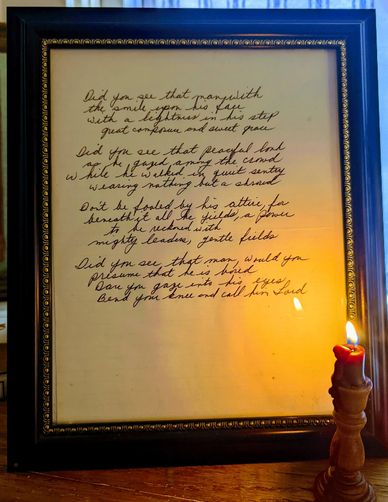 Did you see that man, with
the smile upon his face
with a lightness in his step
great composure and sweet grace
Did you see that peaceful look
as he gazed among the crowd
while he walked in quiet sentry
wearing nothing but a shroud
Don't be fooled by his attire, for
beneath it all he yields, a power
to be reckoned with
mighty leader, gentle fields
Did you see that man, would you
presume that he is bored
Dare you gaze into his eyes,
Bend your knee and call him Lord